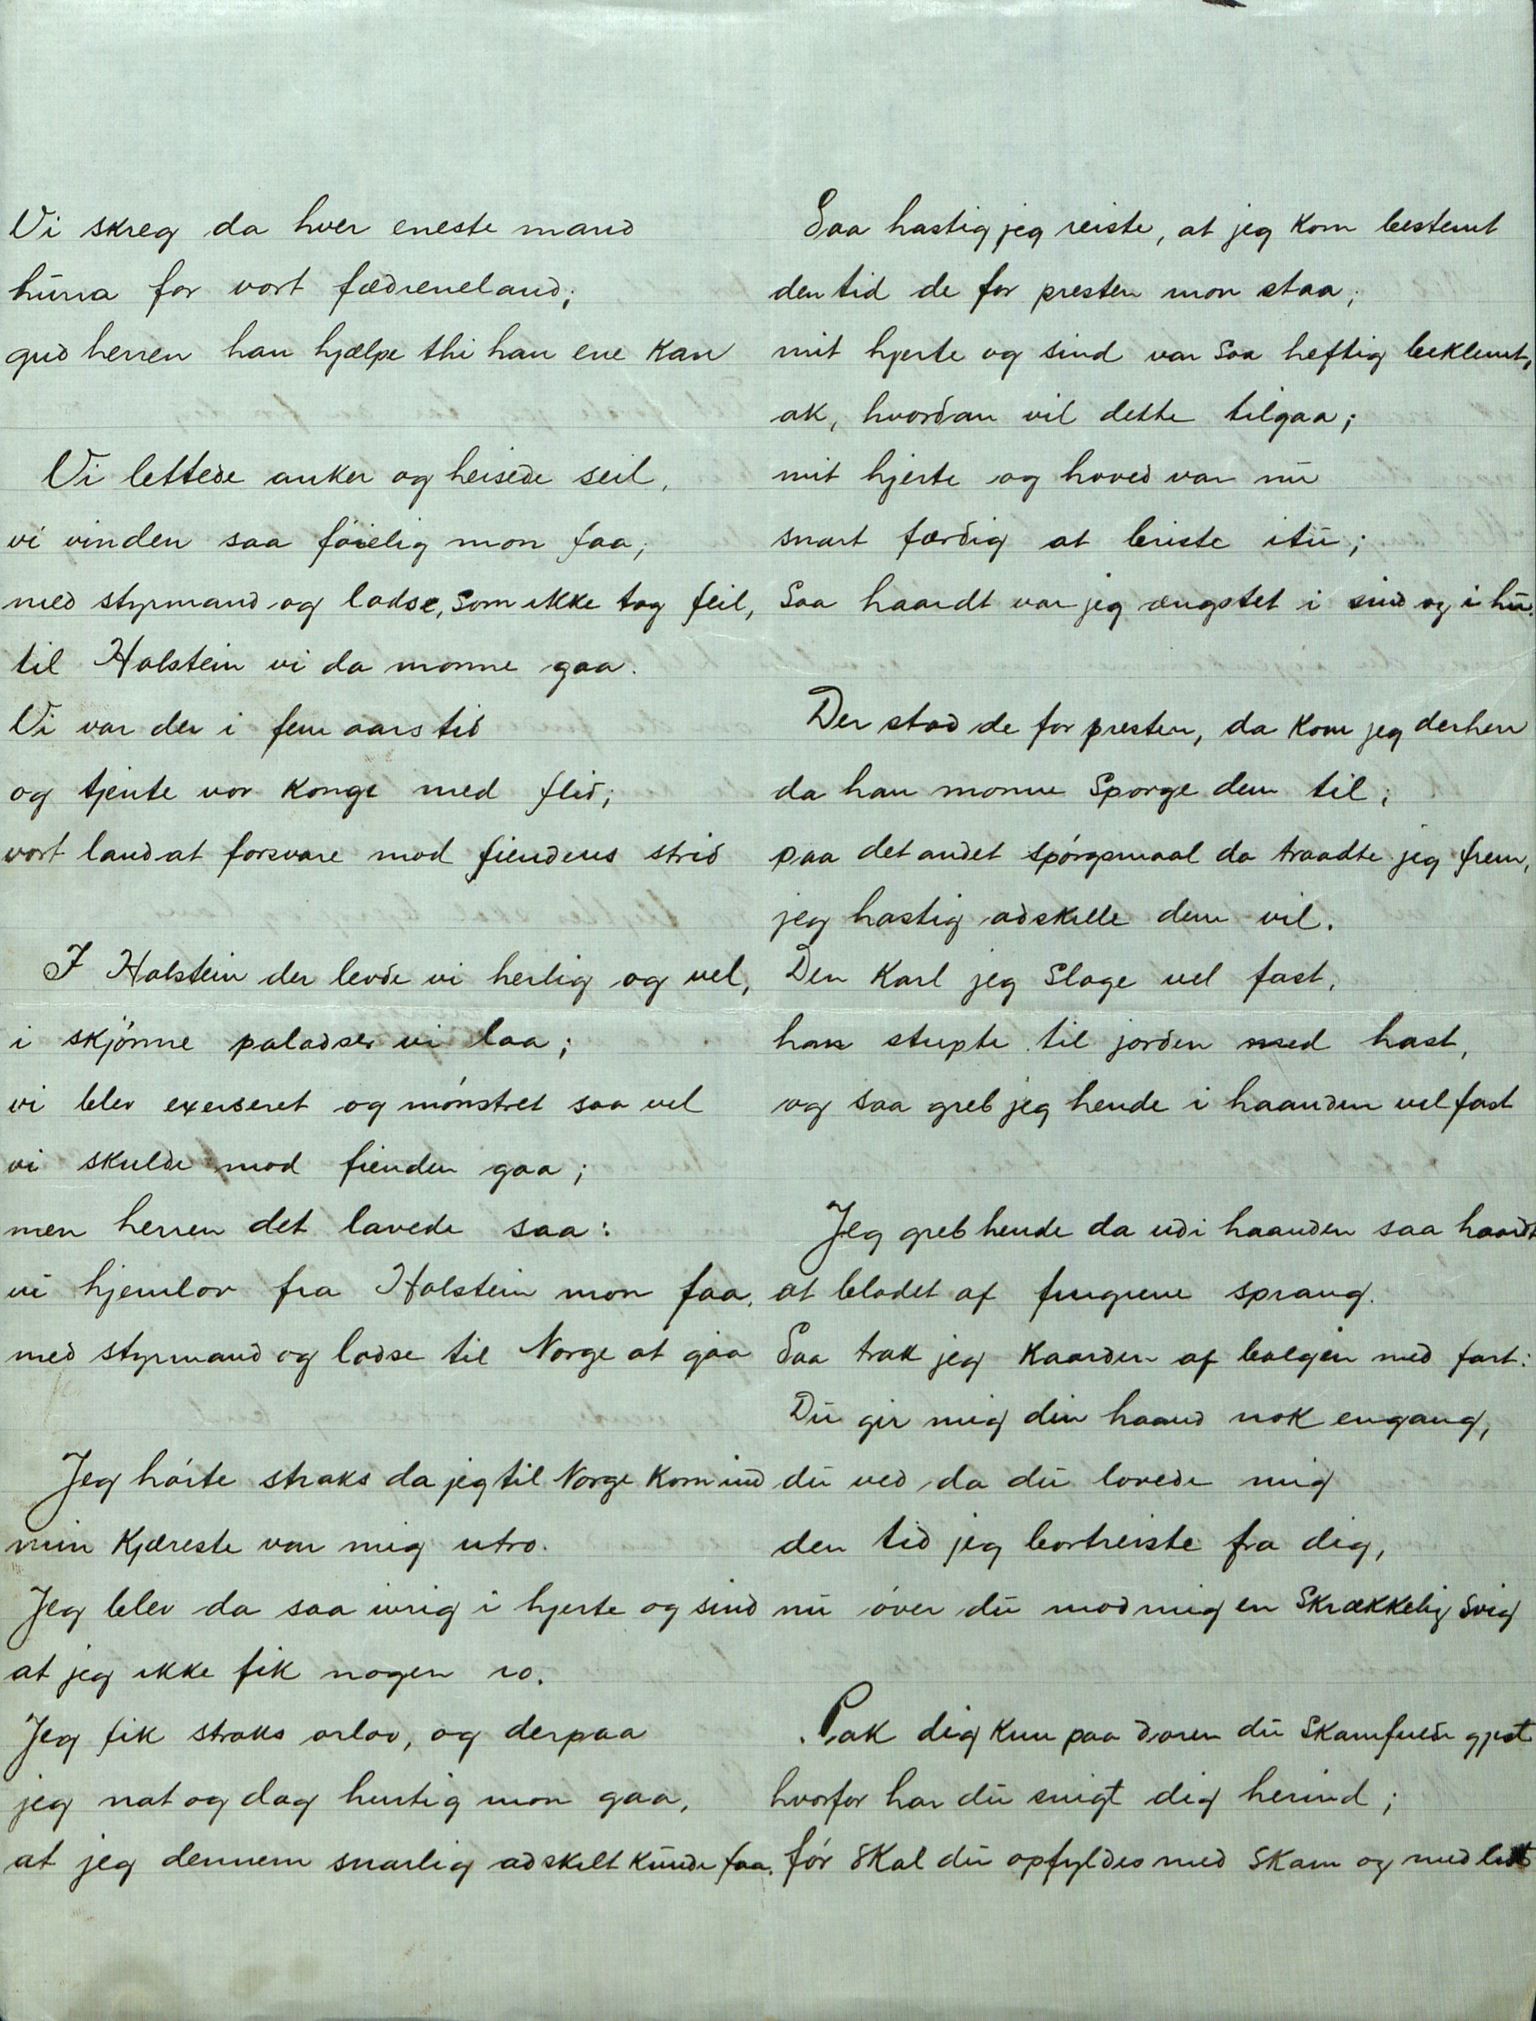 Vi skreg da hver eneste mand
hurra for vort fædreneland;
gud herren han hjælpe thi han ene kan

Vi lettede anker og heisede seil,
vi vinden saa føielig mon faa;
med styrmand og lodse, som ikke tog feil,
til Holstein vi da monne gaa.
Vi var der i fem aars tid
og tjente vor konge med flid;
vort land at forsvare mod fiendens strid

I Holstein der levde vi herlig og vel,
i skjønne paladser vi laa;
vi blev exerseret og mønstret saa vel
vi skulde mod fienden gaa;
men herren det lavede saa:
vi hjemlov fra Holstein mon faa,
med styrmand og lodse til Norge at gaa

Jeg hørte straks da jeg til Norge kom ind
min kjæreste var mig utro.
Jeg blev da saa ivrig i hjerte og sind
at jeg ikke fik nogen ro.
Jeg fik straks orlov, og derpaa
jeg nat og dag hurtig mon gaa,
at jeg dennem snarlig adskilt kunde faa.

Saa hastig jeg reiste, at jeg kom bestemt
den tid de for presten mon staa;
mit hjerte og sind var saa heftig beklemt,
ak, hvordan vil dette tilgaa;
mit hjerte og hoved var nu
snart færdig at briste itu;
saa haardt var jeg ængstet i sind og i hu.

Der stod de for presten, da kom jeg derhen
da han monne sporge dem til;
paa det andet spørgsmaal da traadte jeg frem,
jeg hastig adskille dem vil.
Den karl jeg sloge vel fast,
han stupte til jorden med hast,
og saa greb jeg hende i haanden vel fast

Jeg greb hende da udi haanden saa haardt
at blodet af fingrene sprang.
Saa trak jeg kaarden af balgen med fart:
Du gir mig din haand nok engang,
du ved da du lovede mig
den tid jeg bortreiste fra dig,
nu øver du mod mig en skrækkelig svig

Pak dig kun paa doren du skamfulde gjest
hvorfor har du snigt dig herind;
før skal du opfyldes med skam og med